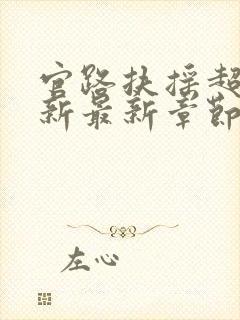 官路扶摇超
新最新章節
左心